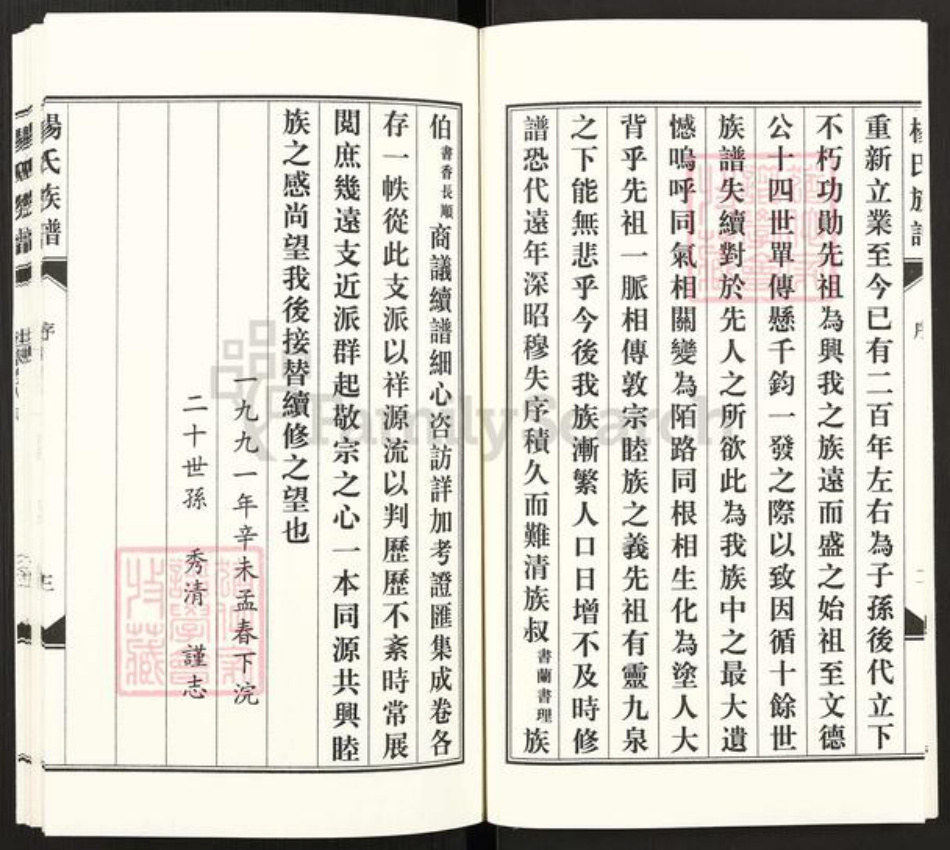 楊氏族譜
序
重新立業至今已有二百年左右為子孫後代立下
不朽功勛先祖為興我之族遠而盛之始祖至文德
公十四世單傳懸千鈞一發之際以致因循十餘世
族譜失續對於先人之所欲此為我族中之最大遺
憾嗚呼同氣相關變為陌路同根相生化為塗人大
背乎先祖一脈相傳敦宗睦族之義先祖有靈九泉
之下能無悲乎今後我族漸繁人口日增不及時修
譜恐代遠年深昭穆失序積久而難清族叔書蘭書理族
伯書香長順商議續譜細心咨訪詳加考證匯集成卷各
存一帙從此支派以祥源流以判歷歷不紊時常展
閲庶幾遠支近派群起敬宗之心一本同源共興睦
族之感尚望我後接替續修之望也
一九九一年辛未孟春下浣
二十世孫 秀清 謹志
楊氏族譜
序
FamilySearch